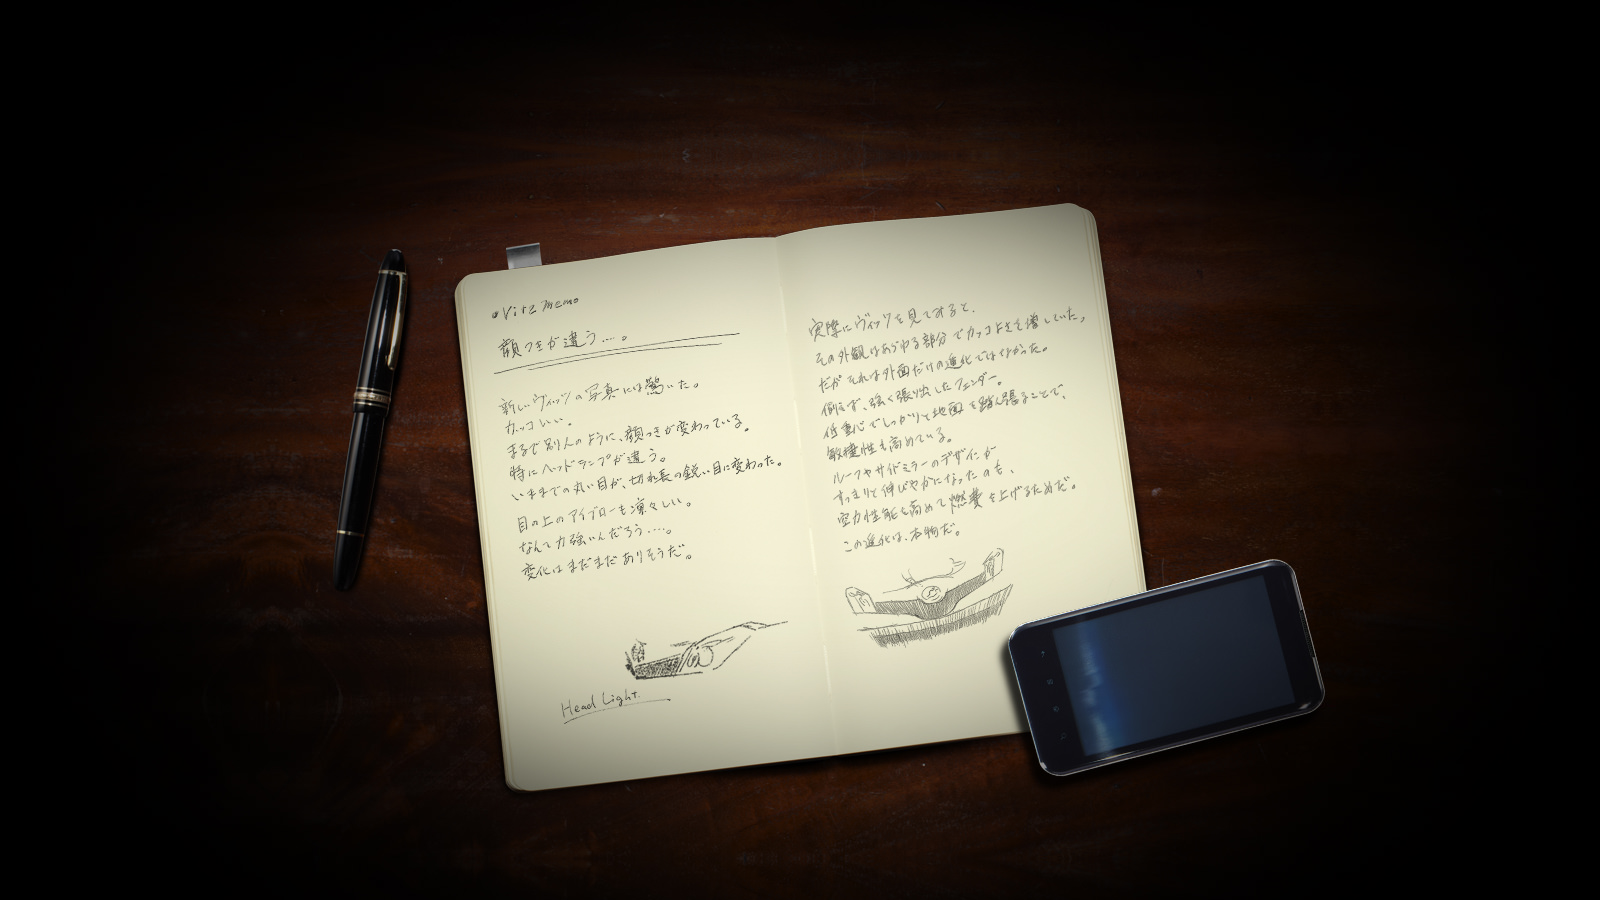 ●Vitz Memo
顔つきが違う…。
新しいヴィッツの写真には驚いた。
カッコいい。
まるで別人のように、顔つきが変わっている。
特にヘッドランプが違う。
いままでの丸い目が、切れ長の鋭い目に変わった。
目の上のアイブローも凛々しい。
なんて力強いんだろう…。
変化はまだまだありそうだ。
Head Light.
実際にヴィッツを見てみると、
その外観はあらゆる部分でカッコよさを増していた。
だがそれは外面だけの進化ではなかった。
例えば、強く張り出したフェンダー。
低重心でしっかりと地面を踏ん張ることで、
敏捷性も高めている。
ルーフやサイドミラーのデザインが
すっきりと伸びやかになったのも、
空力性能を高めて燃費を上げるためだ。
この進化は、本物だ。